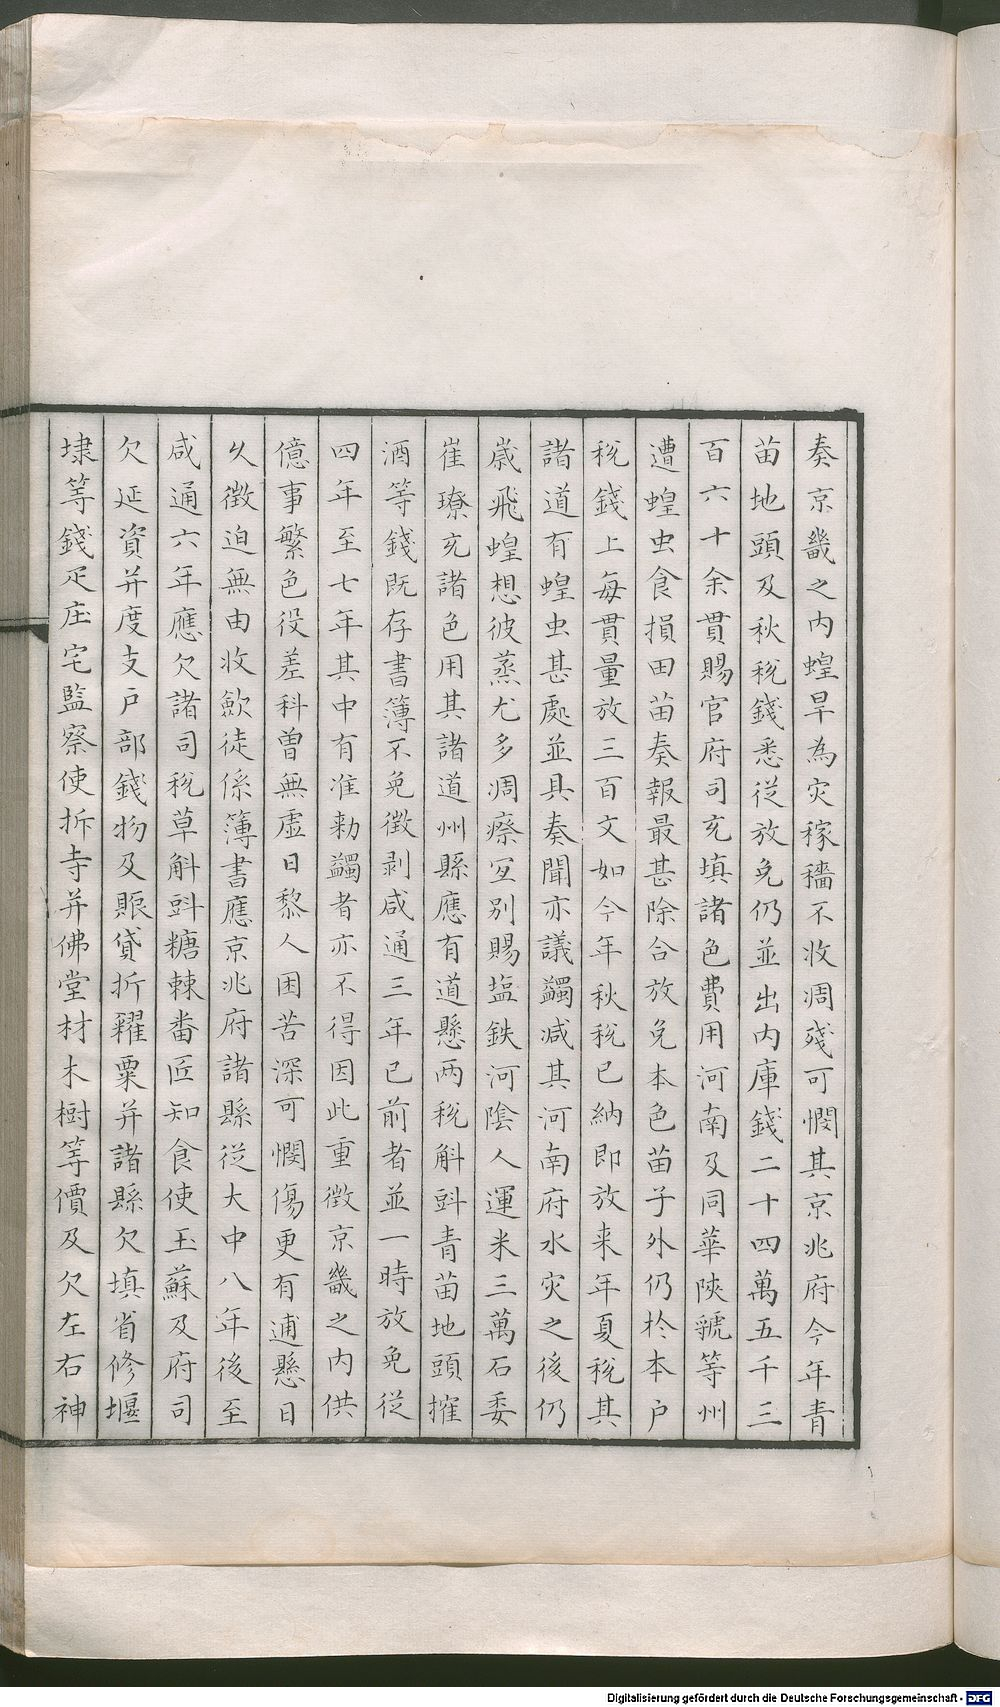 奏京畿之内蝗旱為灾稼穡不收凋殘可憫其京兆府今年青
苗地頭及秋稅錢悉從放免仍並出内庫錢二十四萬五千三
百六十余貫賜官府司充填諸色費用河南及同華陝虢等州
遭蝗虫食損田苗奏報最甚除合放免本色苗子外仍扵本户
稅錢上每貫量放三百文如今年秋稅已納即放来年夏稅其
諸道有蝗虫甚處並具奏聞亦議蠲减其河南府水灾之後仍
嵗飛蝗想彼蒸尤多凋瘵宜别賜塩鉄河陰人運米三萬石委
崔璙充諸色用其諸道州縣應有道懸兩稅斛㪷青苗地頭搉
酒等錢既存書簿不免徵剥咸通三年已前者並一時放免從
四年至七年其中有准勅蠲者亦不得因此重徵京畿之内供
億事繁色役差科曽無虚日黎人困苦深可憫傷更有逋懸日
久徵迫無由收歛徒係簿書應京兆府諸縣從大中八年後至
咸通六年應欠諸司稅草斛㪷糖棘畨匠知食使玉蘇及府司
欠延資并度支户部錢物及賑貸折糴粟并諸縣欠填省修堰
埭等錢疋庄宅監察使拆寺并佛堂材木樹等價及欠左右神
Digitalisierung gefördert durch die Deutsche Forschungsgemeinschaft - DFG